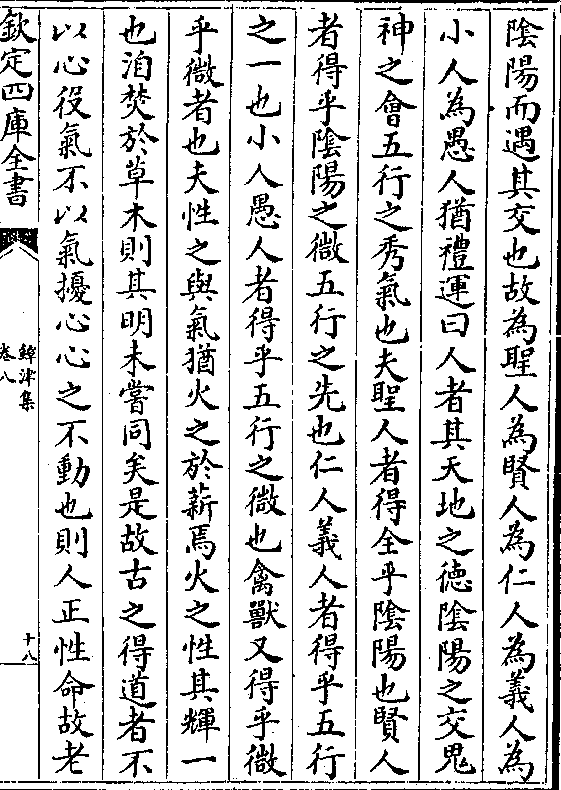 陰陽而遇其交也故為聖人為賢人為仁人為義人為
小人為愚人猶禮運曰人者其天地之德陰陽之交鬼
神之會五行之秀氣也夫聖人者得全乎陰陽也賢人
者得乎陰陽之微五行之先也仁人義人者得乎五行
之一也小人愚人者得乎五行之微也禽獸又得乎微
乎微者也夫性之與氣猶火之於薪焉火之性其輝一
也洎焚於草木則其明未嘗同矣是故古之得道者不
以心役氣不以氣擾心心之不動也則人正性命故老
欽定四庫全書
鐔津集
卷八
十八